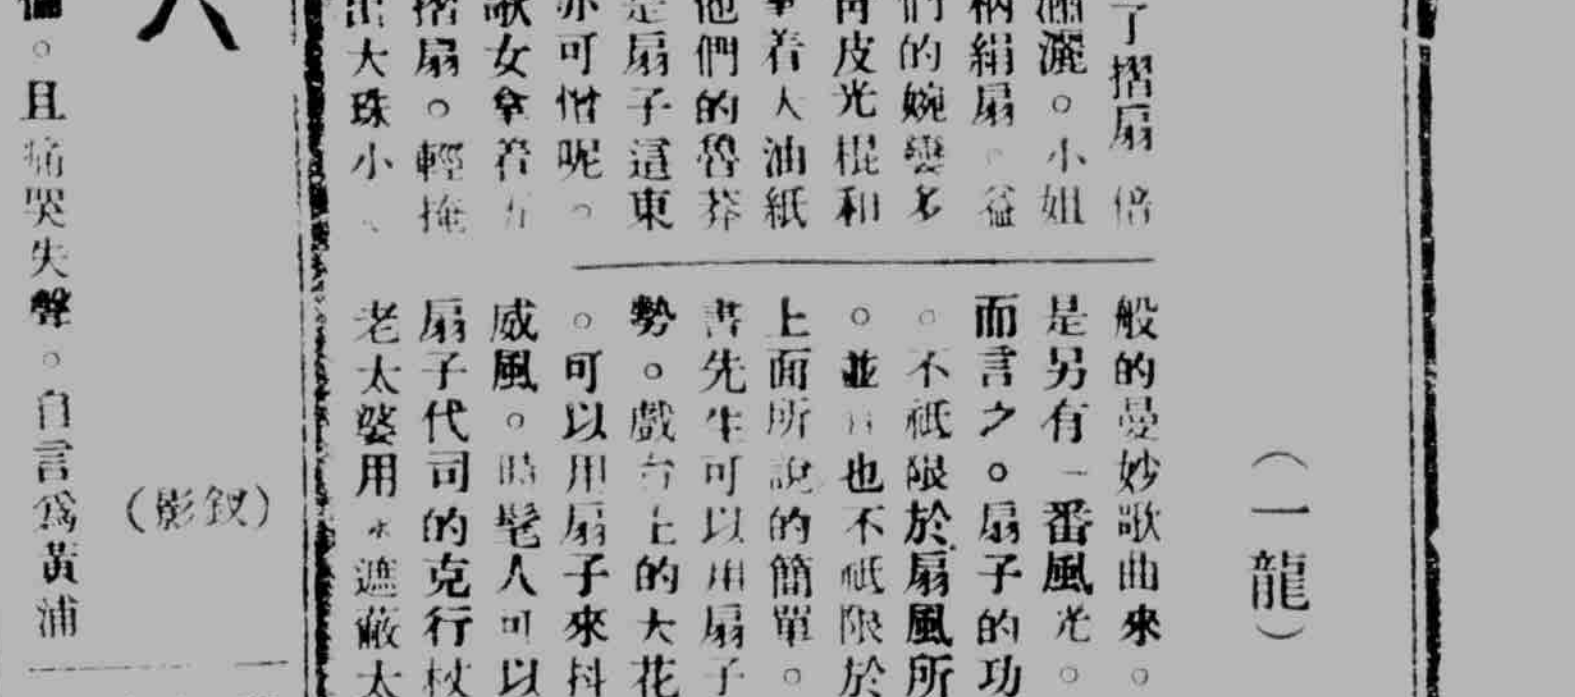 （一龍）
了摺扇　倍
滿灑。小姐
柄絹扇。益
們的婉孌多
皮光棍和
拿着大油紙
他們的魯莽
是扇子這東
亦可憎呢。
歌女拿着五
摺扇。輕掩
出大珠小、
般的曼妙歌曲來。
是另有一番風光。
而言之。扇子的功
。不祇限於扇風所
。並且也不祇限於
上面所說的簡單。
書先生可以用扇子
勢。戲台上的大花
。可以用扇子來抖
威風。時髦人可以
扇子代司的克行杖
老太婆用來遮蔽太
（影釵）
。且痛哭失聲。自言爲黃浦